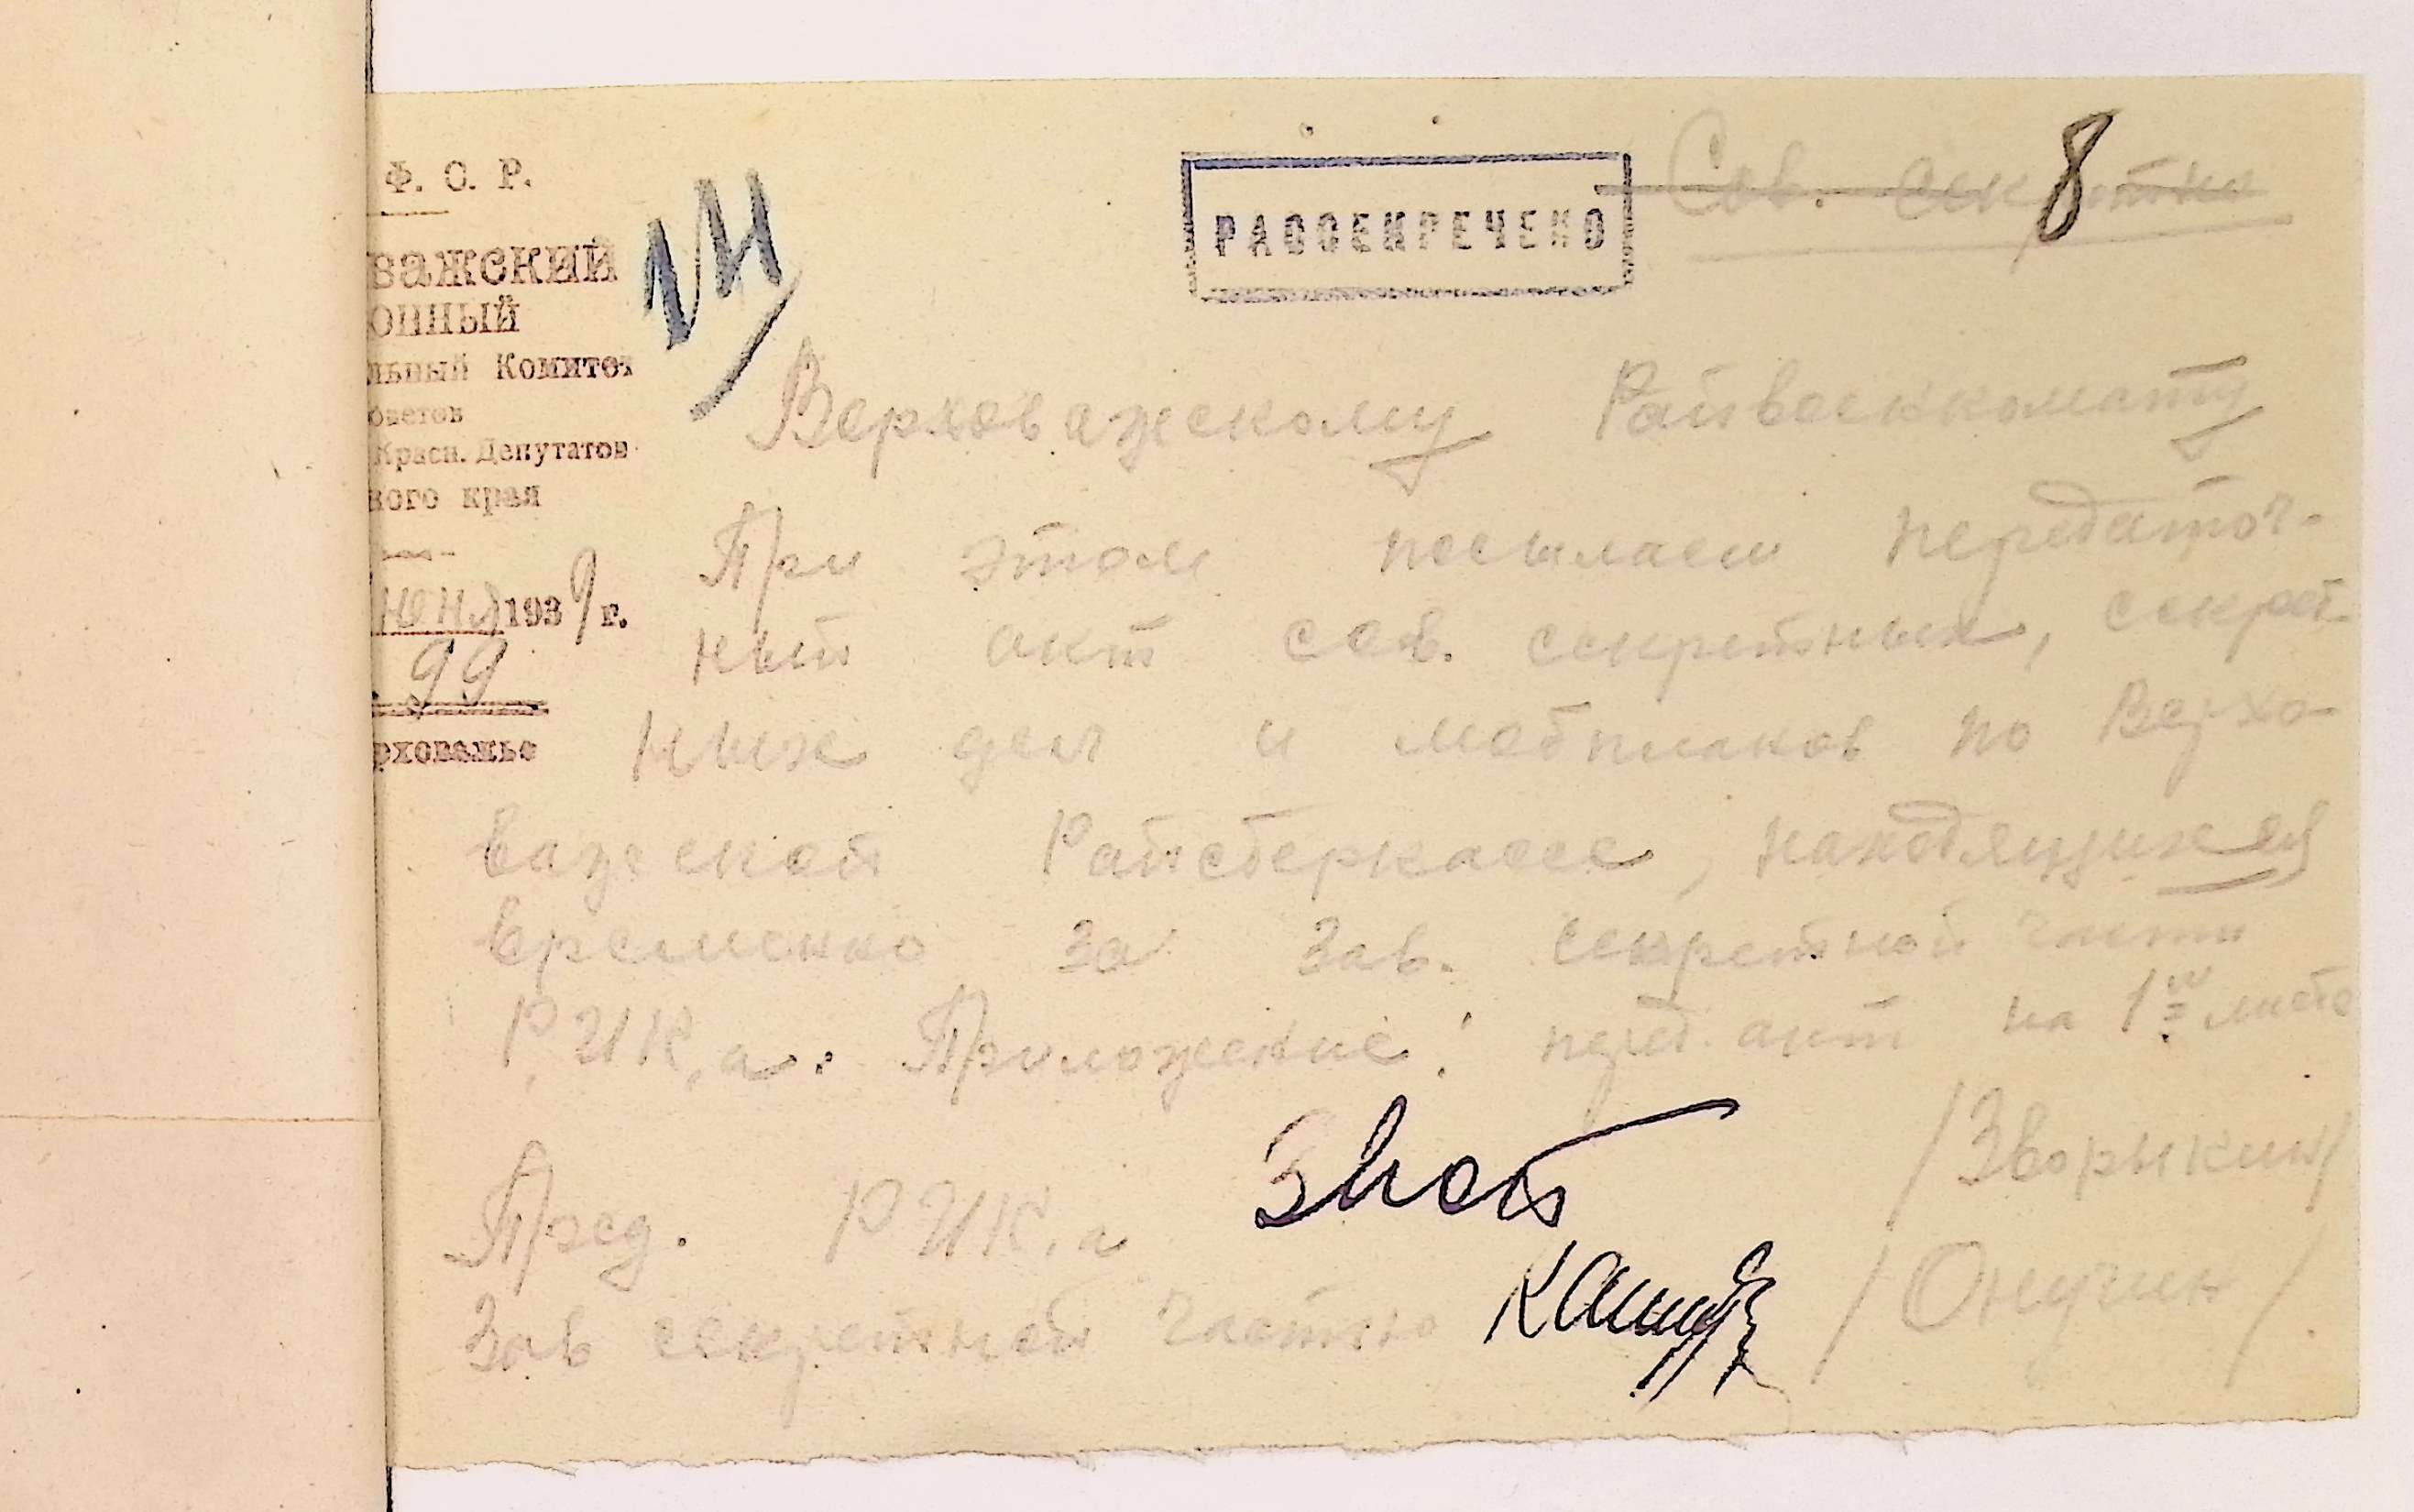 Ф. С. Р.
важский
онный
льный Комитет
оветов
Красн. Депутатов
ного края
юня 1939 г.
99
рховажье
РАССЕКРЕЧЕНО
Сов. секретно
8
Верховажскому Райвоенкомату
При этом посылаем передаточ-
ный акт сов. секретных, секрет-
ных дел и мобпланов по Верхо-
важской Райсберкассе, находящихся
временно за Зав. секретной части
Р,ИК,а. Приложение: перед. акт на 1м листе
Пред. РИК,а /Зворыкин/
Зав секретной частью /Онучин/.